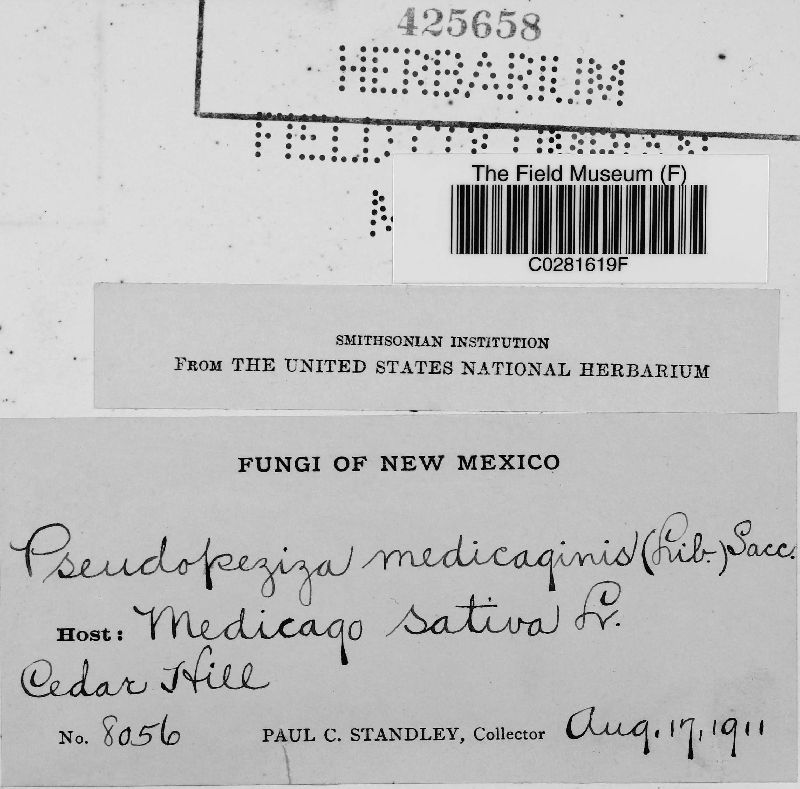 425658
HERBARIUM
FIELD
The Field Museum (F)
C0281619F
SMITHSONIAN INSTITUTION
FROM THE UNITED STATES NATIONAL HERBARIUM
FUNGI OF NEW MEXICO
Pseudopeziza medicaginis (Lib.) Sacc.
Host: Medicago sativa L.
Cedar Hill
No. 8056 PAUL C. STANDLEY, Collector Aug. 17, 1911